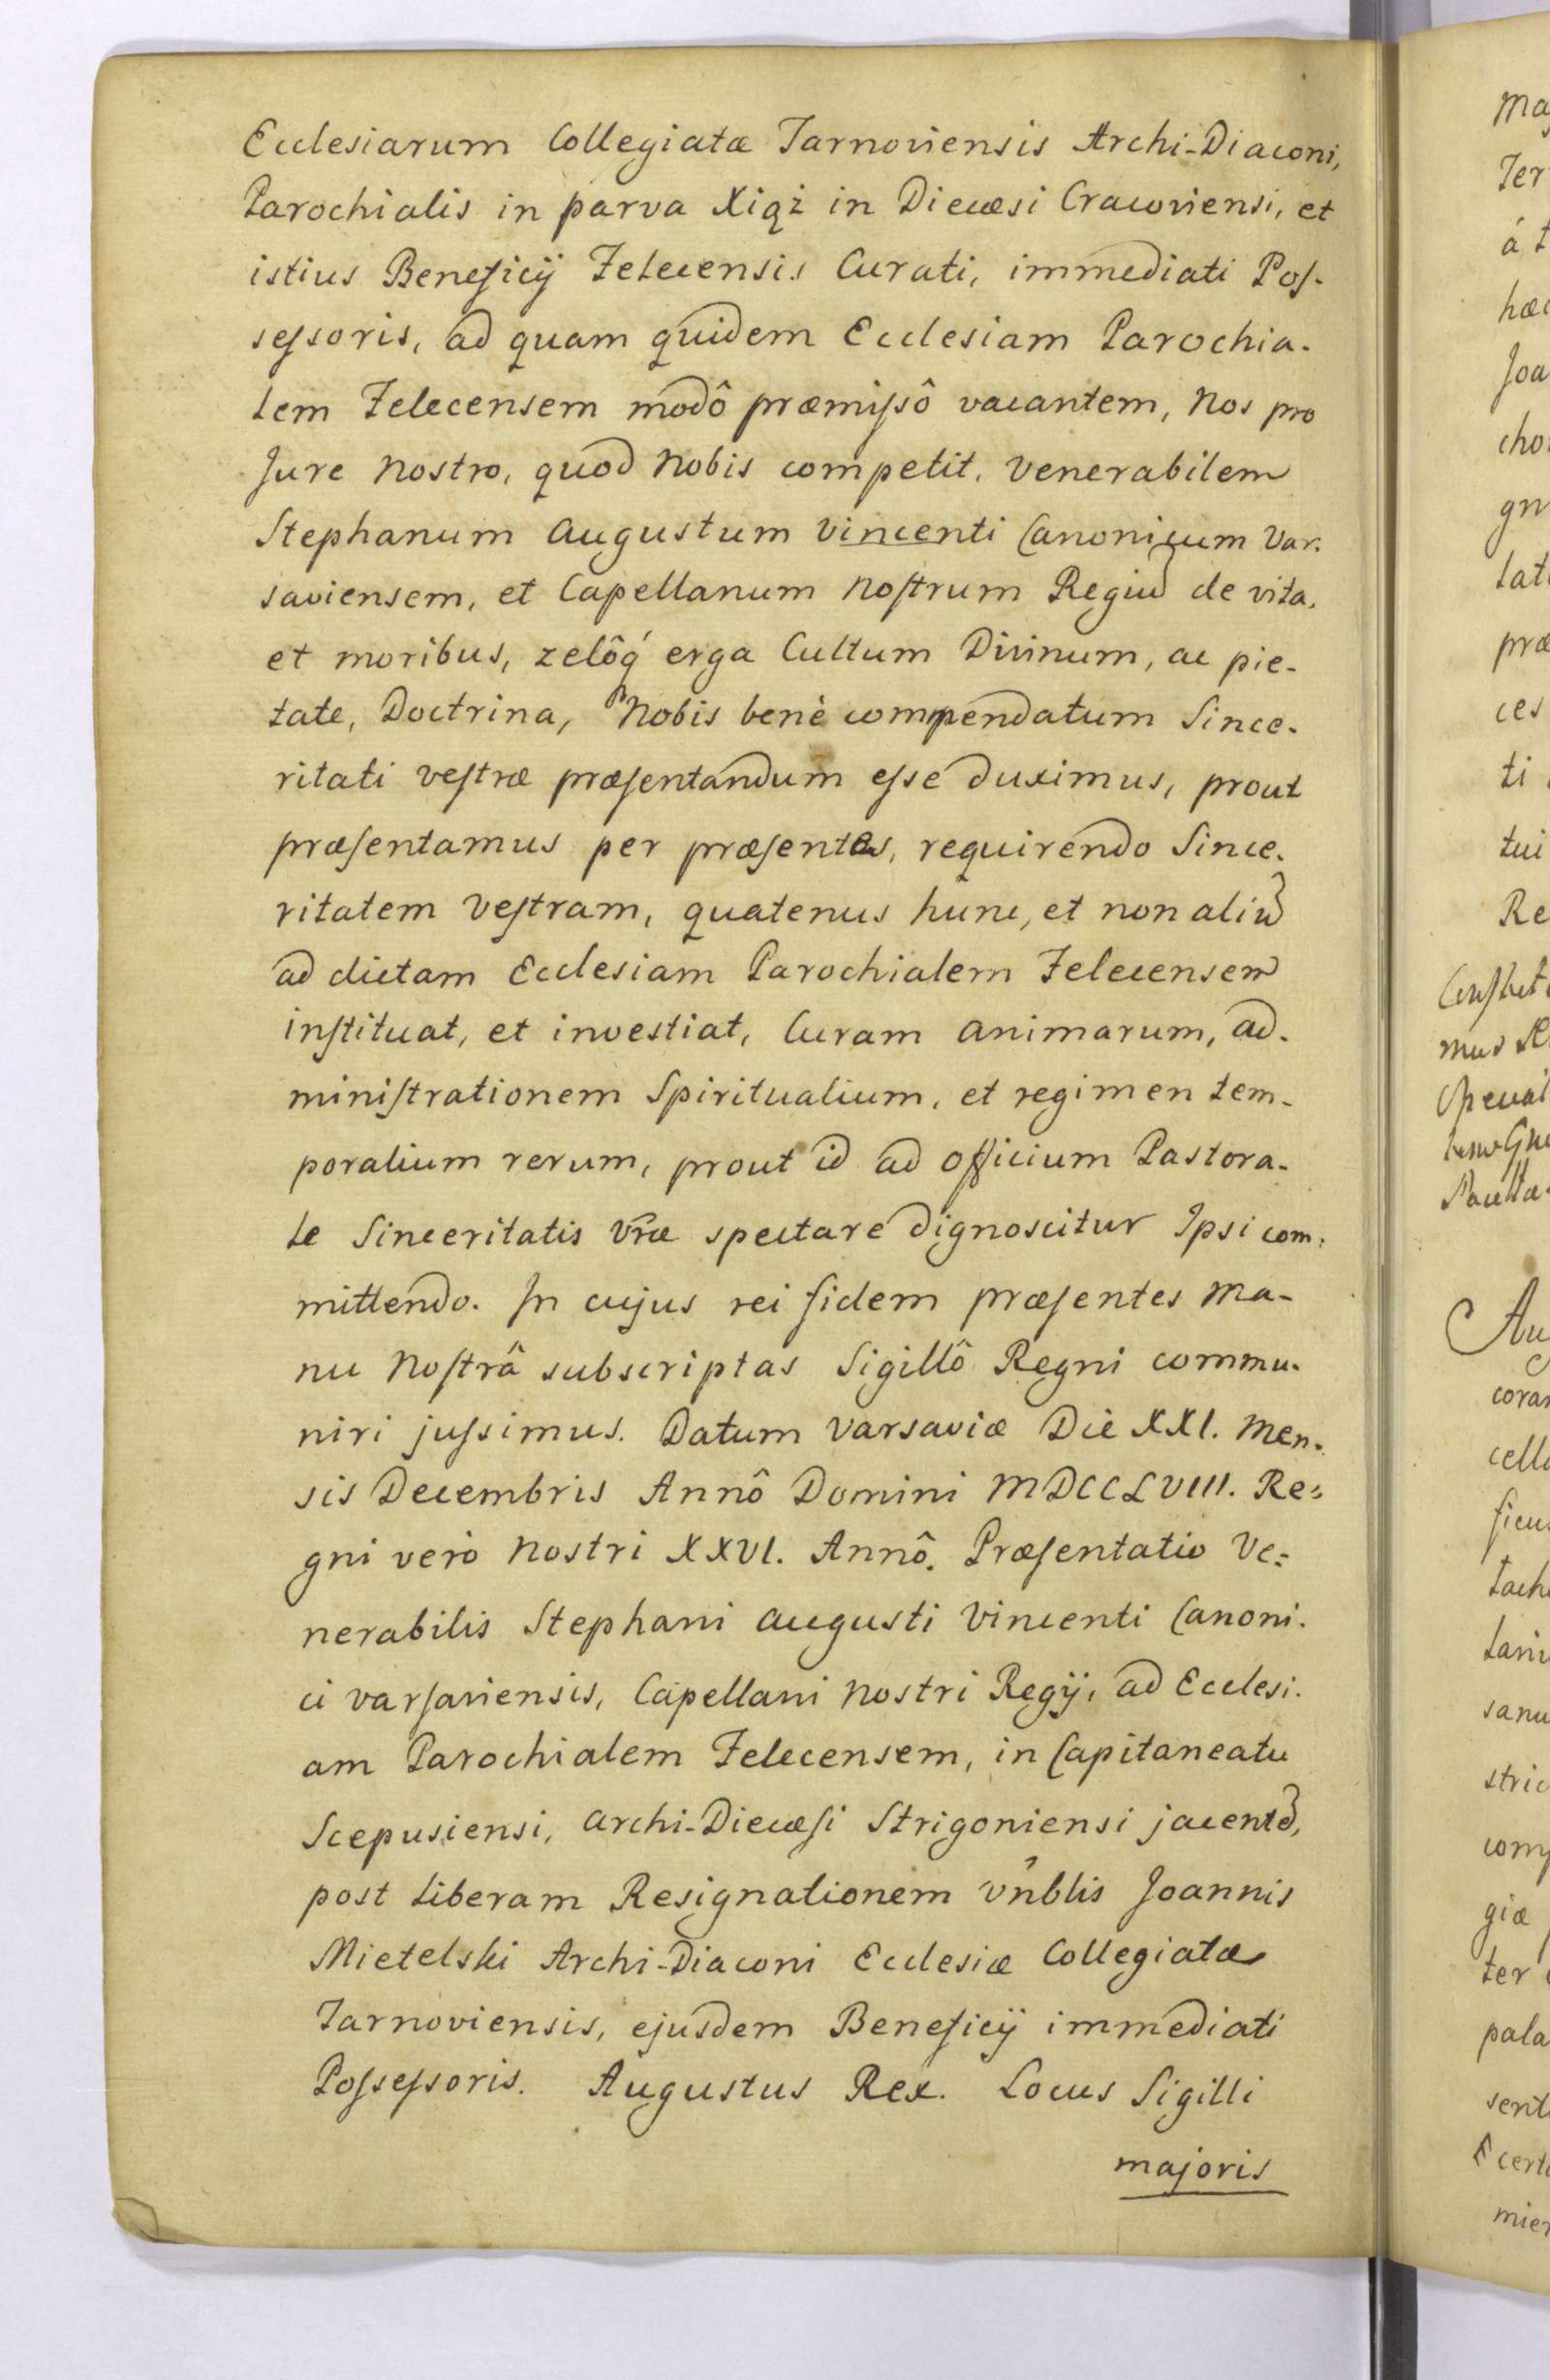 Ecclesiarum Collegiatæ Tarnoviensis Archi-Diaconi,
Parochialis in parva Xiąż in Diecæsi Cracoviensi, et
istius Beneficÿ Felecensis Curati, immediati Pos-
sessoris, ad quam quidem Ecclesiam Parochia-
lem Felecensem modô præmissô vacantem, Nos pro
Jure Nostro, quod Nobis competit, Venerabilem
Stephanum Augustum Vincenti Canonicum Var-
saviensem, et Capellanum Nostrum Regiū de vita,
et moribus, zelôq́ erga Cultum Divinum, ac pie-
tate, Doctrina, Nobis benè commendatum Since-
ritati vestræ præsentandum esse duximus, prout
præsentamus per præsentes, requirendo Since-
ritatem Vestram, quatenus hunc, et non aliū
ad dictam Ecclesiam Parochialem Felecensem
instituat, et investiat, Curam Animarum, ad-
ministrationem Spiritualium, et regimen tem-
poralium rerum, prout id ad officium Pastora-
le Sinceritatis Vr̃æ spectare dignoscitur Ipsi com-
mittendo. In cujus rei fidem præsentes Ma-
nu Nostrâ subscriptas Sigillô Regni commu-
niri jussimus. Datum Varsaviæ Die XXI. Men-
sis Decembris Annô Domini MDCCLVIII. Re=
gni verò Nostri XXVI. Annô. Præsentatio Ve=
nerabilis Stephani Augusti Vincenti Canoni-
ci Varsaviensis, Capellani Nostri Regÿ, ad Ecclesi-
am Parochialem Felecensem, in Capitaneatu
Scepusiensi, Archi-Diecæsi Strigoniensi jacentē,
post liberam Resignationem Vn̂blis Joannis
Mietelski Archi-Diaconi Ecclesiæ Collegiatæ
Tarnoviensis, ejusdem Beneficÿ immediati
Possessoris. Augustus Rex. Locus Sigilli
majoris